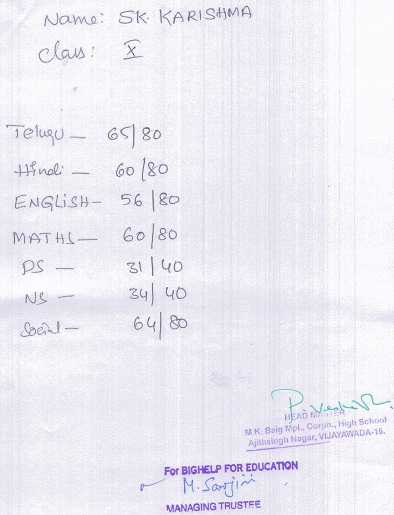 Name: SK. KARISHMA
Class: X
Telugu — 65/80
Hindi — 60/80
ENGLISH — 56/80
MATHS — 60/80
PS — 31/40
NS — 34/40
Social — 64/80
HEAD MASTER
M.K. Baig Mpl., Corpn., High School
Ajithsingh Nagar, VIJAYAWADA-15.
For BIGHELP FOR EDUCATION
M. Sarojini
MANAGING TRUSTEE